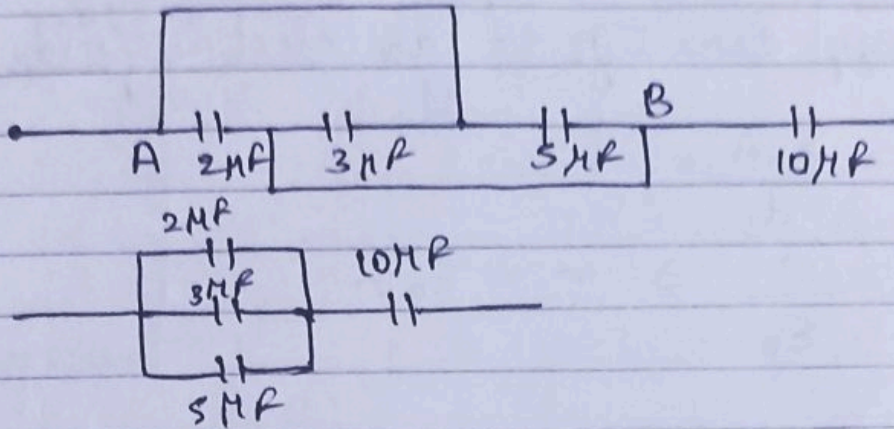 B
A 2μF 3μF 5μF 10μF
2μF
3μF 10μF
5μF